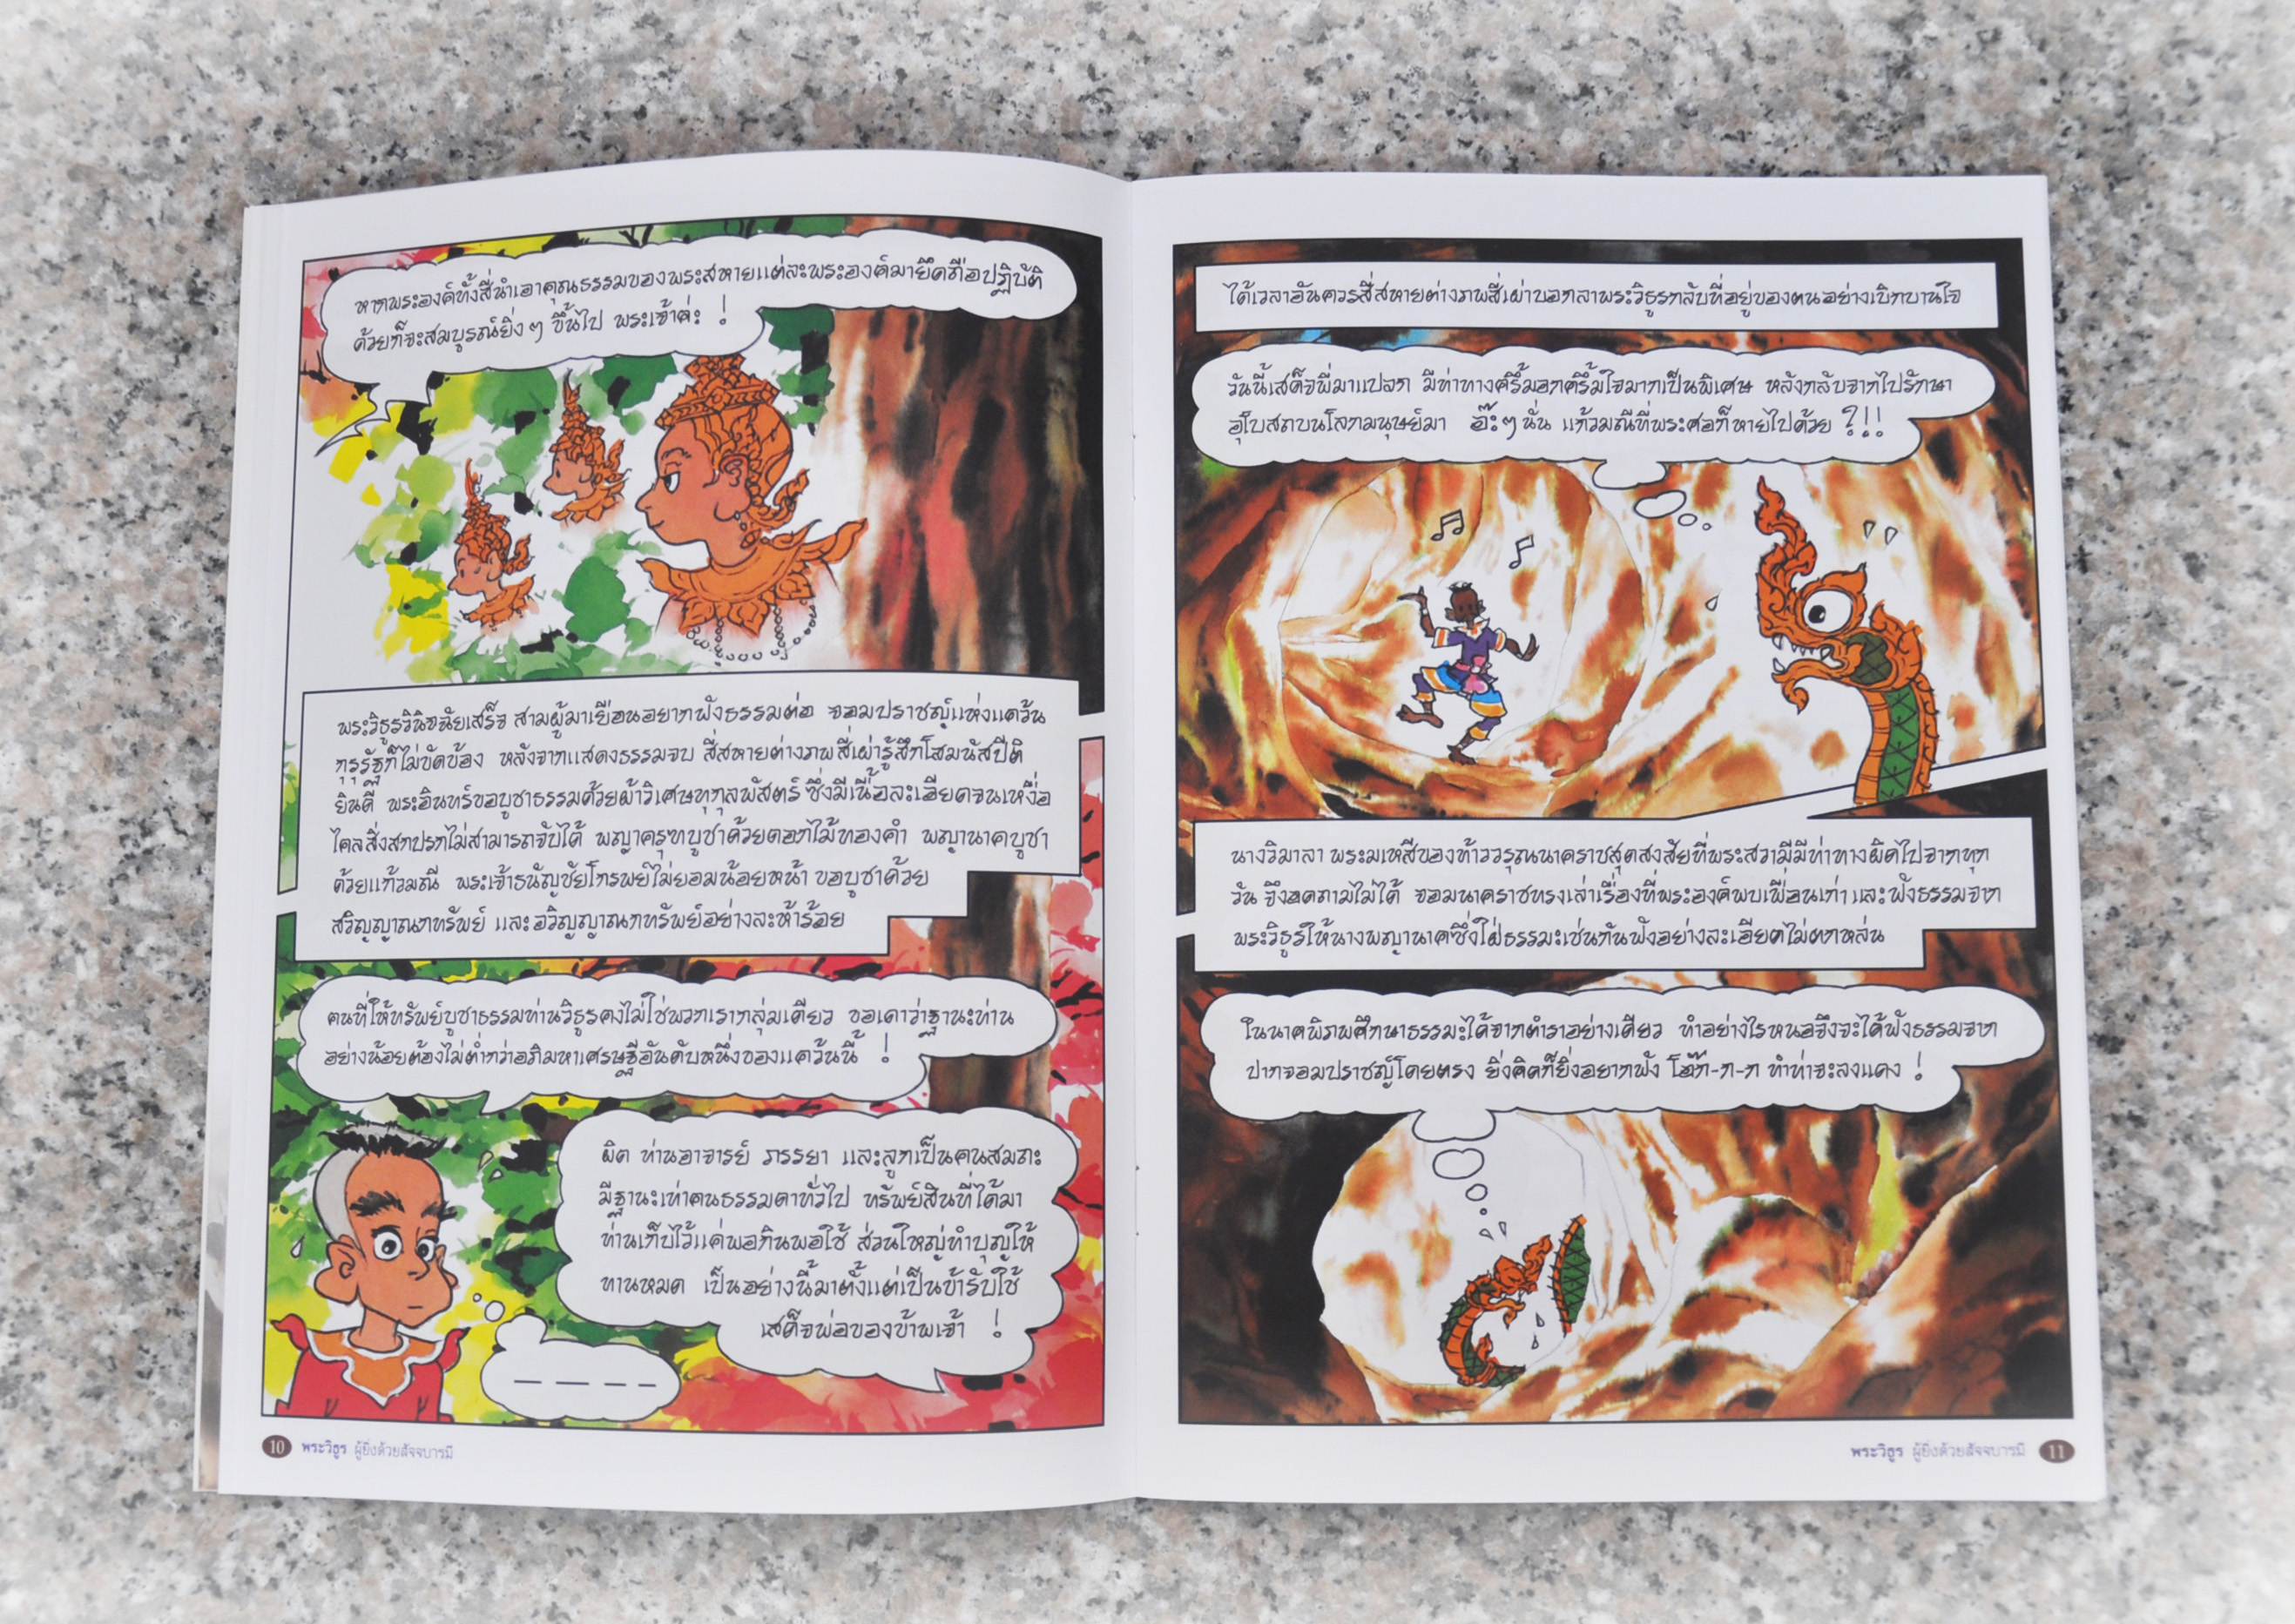 หากพระองค์ทั้งสี่นำเอาคุณธรรมของพระสหายแต่ละพระองค์มายึดถือปฏิบัติ
ด้วยก็จะสมบูรณ์ยิ่งๆ ขึ้นไป พระเจ้าค่ะ !
พระวิธูรวินิจฉัยเสร็จ สามผู้มาเยือนอยากฟังธรรมต่อ จอมปราชญ์แห่งแคว้น
กุรุรัฐก็ไม่ขัดข้อง หลังจากแสดงธรรมจบ สี่สหายต่างภพสี่เผ่ารู้สึกโสมนัสปีติ
ยินดี พระอินทร์ขอบูชาธรรมด้วยผ้าวิเศษทุกุลพัสตร์ ซึ่งมีเนื้อละเอียดจนเหงื่อ
ไคลสิ่งสกปรกไม่สามารถจับได้ พญาครุฑบูชาด้วยดอกไม้ทองคำ พญานาคบูชา
ด้วยแก้วมณี พระเจ้าธนัญชัยโกรพย์ไม่ยอมน้อยหน้า ขอบูชาด้วย
สวิญญาณกทรัพย์ และอวิญญาณกทรัพย์อย่างละห้าร้อย
คนที่ให้ทรัพย์บูชาธรรมท่านวิธูรคงไม่ใช่พวกเรากลุ่มเดียว ขอเดาว่าฐานะท่าน
อย่างน้อยต้องไม่ต่ำกว่าอภิมหาเศรษฐีอันดับหนึ่งของแคว้นนี้ !
ผิด ท่านอาจารย์ ภรรยา และลูกเป็นคนสมถะ
มีฐานะเท่าคนธรรมดาทั่วไป ทรัพย์สินที่ได้มา
ท่านเก็บไว้แค่พอกินพอใช้ ส่วนใหญ่ทำบุญให้
ทานหมด เป็นอย่างนี้มาตั้งแต่เป็นข้ารับใช้
เสด็จพ่อของข้าพเจ้า !
10 พระวิธูร ผู้ยิ่งด้วยสัจจบารมี
ได้เวลาอันควรสี่สหายต่างภพสี่เผ่าบอกลาพระวิธูรกลับที่อยู่ของตนอย่างเบิกบานใจ
วันนี้เสด็จพี่มาแปลก มีท่าทางครึ้มอกครึ้มใจมากเป็นพิเศษ หลังกลับจากไปรักษา
อุโบสถบนโลกมนุษย์มา อ๊ะๆ นั่น แก้วมณีที่พระศอก็หายไปด้วย ?!!
นางวิมาลา พระมเหสีของท้าววรุณนาคราชสุดสงสัยที่พระสวามีมีท่าทางผิดไปจากทุก
วัน จึงอดถามไม่ได้ จอมนาคราชทรงเล่าเรื่องที่พระองค์พบเพื่อนเก่า และฟังธรรมจาก
พระวิธูรให้นางพญานาคซึ่งใฝ่ธรรมะเช่นกันฟังอย่างละเอียดไม่ตกหล่น
ในนาคพิภพศึกษาธรรมะได้จากตำราอย่างเดียว ทำอย่างไรหนอจึงจะได้ฟังธรรมจาก
ปากจอมปราชญ์โดยตรง ยิ่งคิดก็ยิ่งอยากฟัง โอ๊ก-ก-ก ทำท่าจะลงแดง !
พระวิธูร ผู้ยิ่งด้วยสัจจบารมี 11